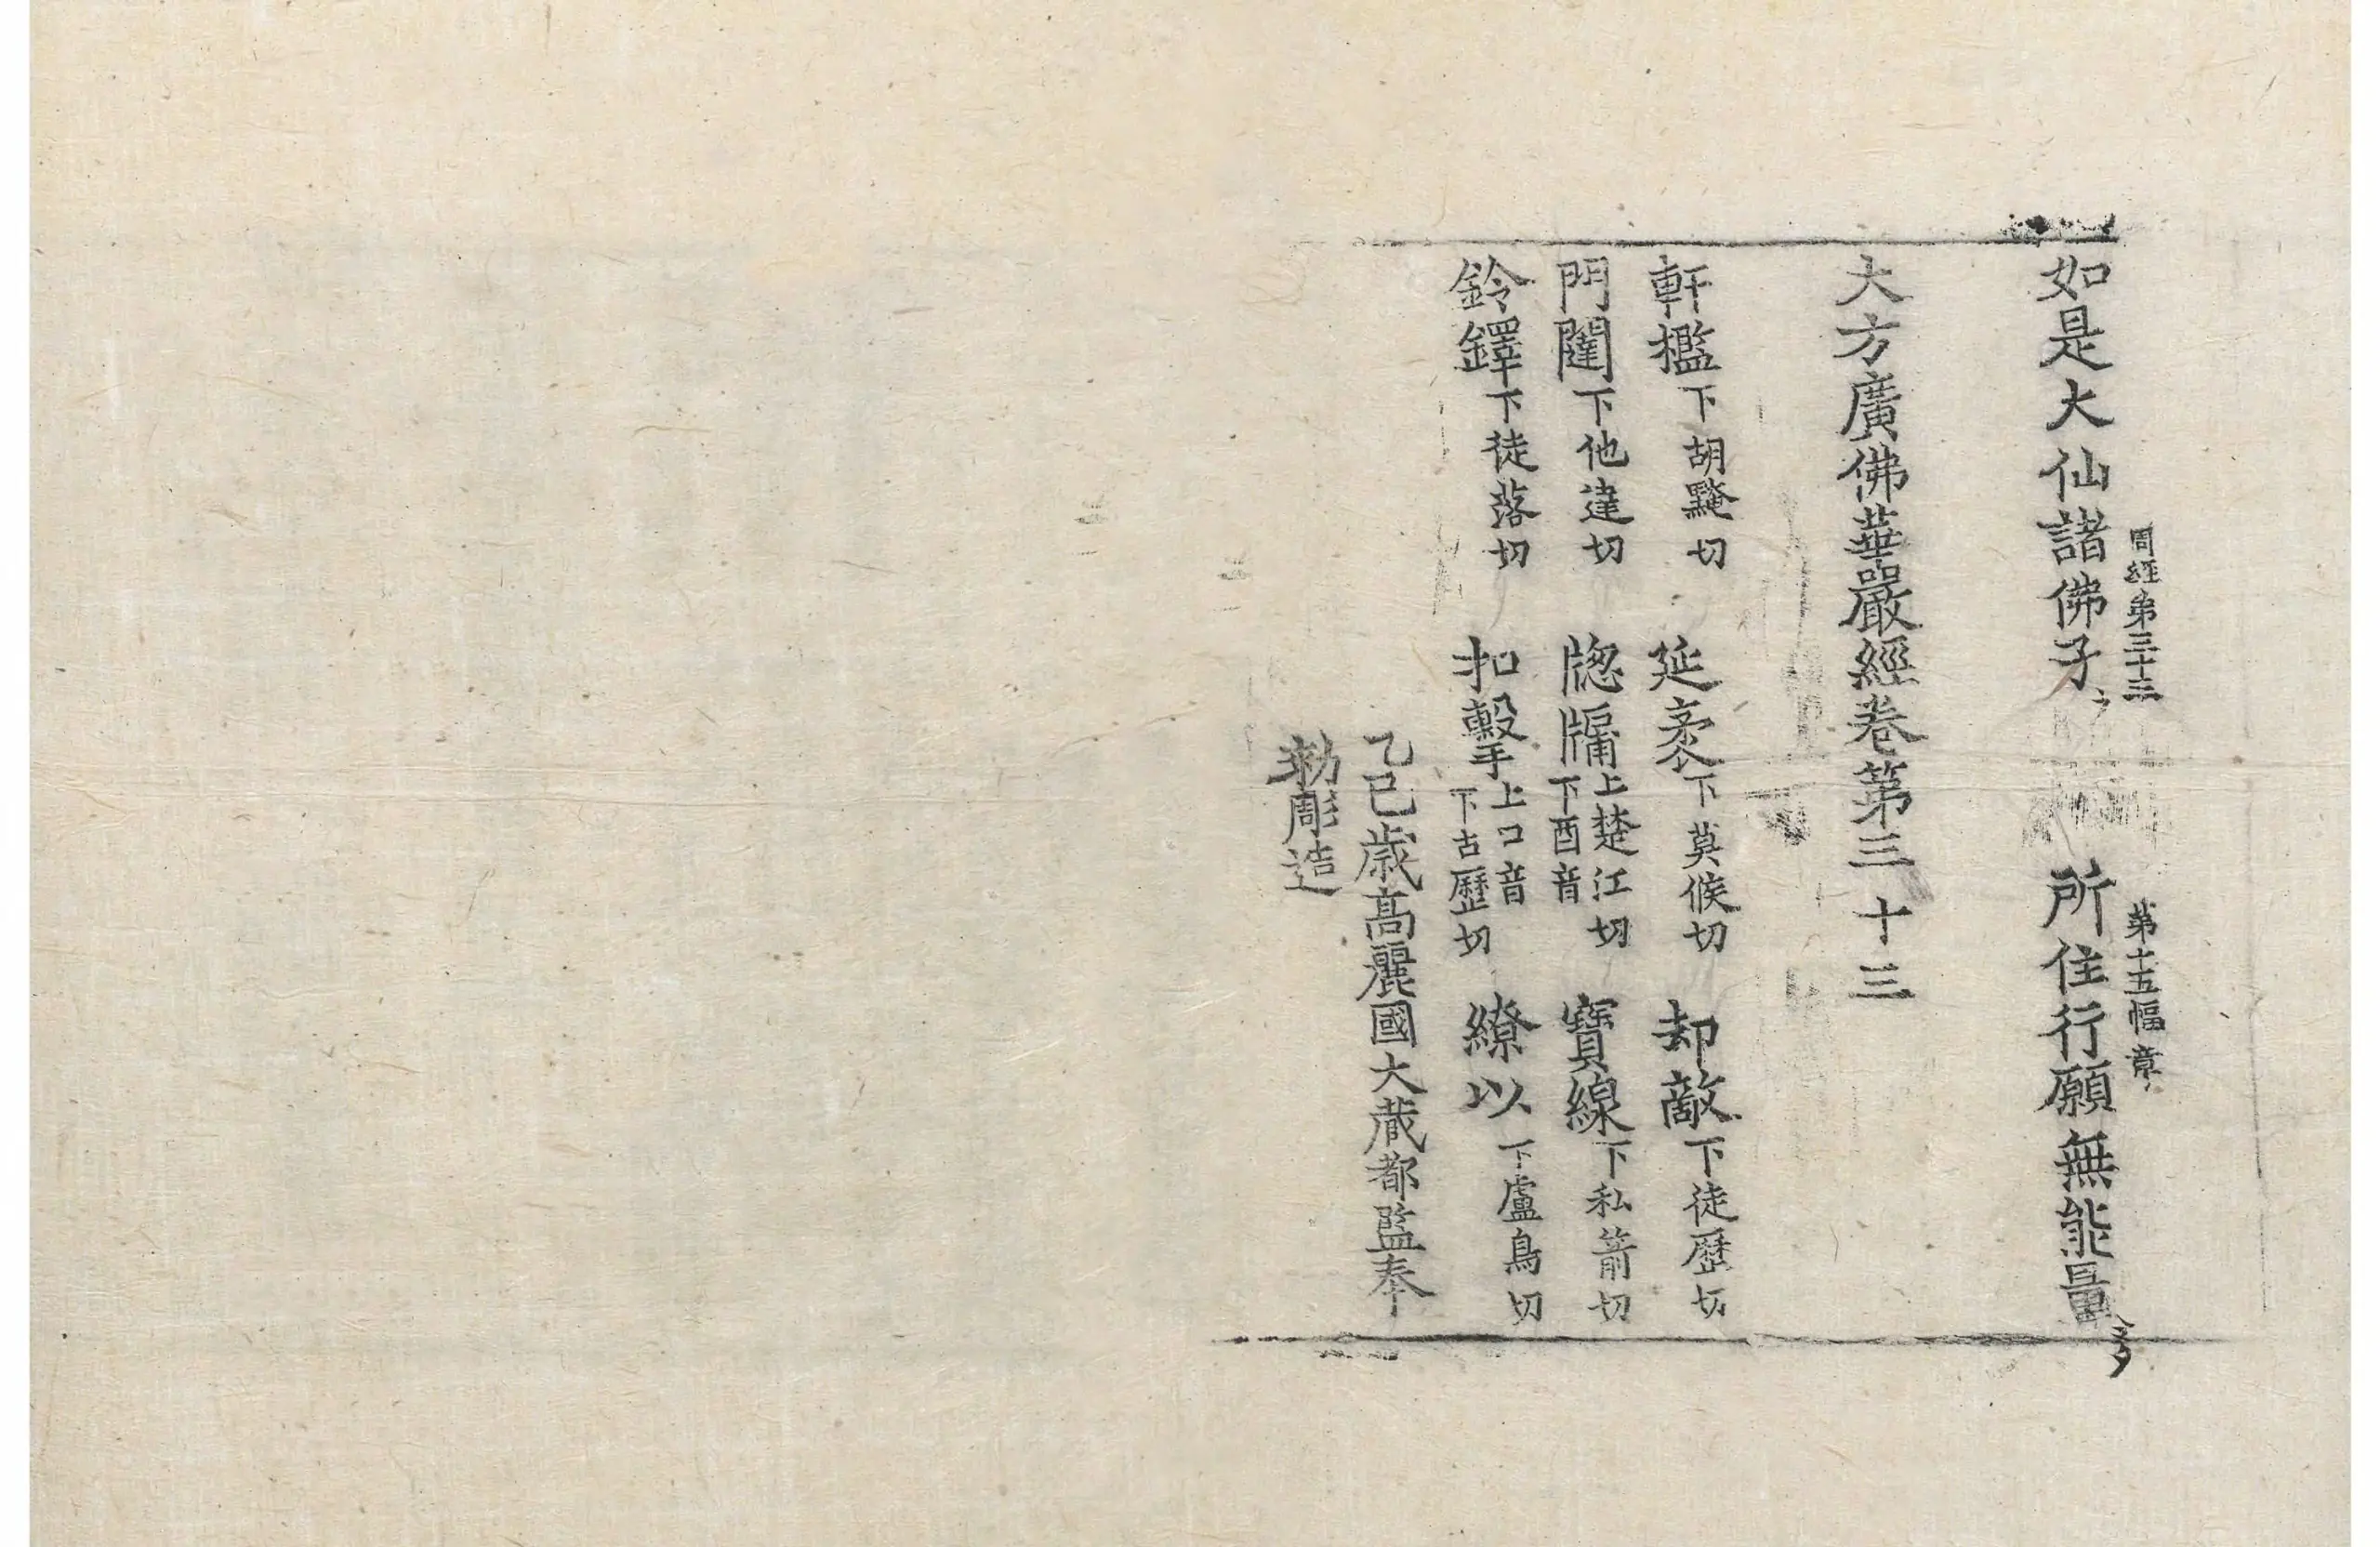 周經第三十三 第十五幅 章
如是大仙諸佛子 所住行願無能量
大方廣佛華嚴經卷第三十三
軒檻下胡黤切 延袤下莫候切 却敵下徒歷切
門闥下他達切 牕牖上楚江切下酉音 寶線下私箭切
鈴鐸下徒落切 扣擊上口音下古歷切 繚以下盧鳥切
乙巳歲高麗國大藏都監奉
勑彫造